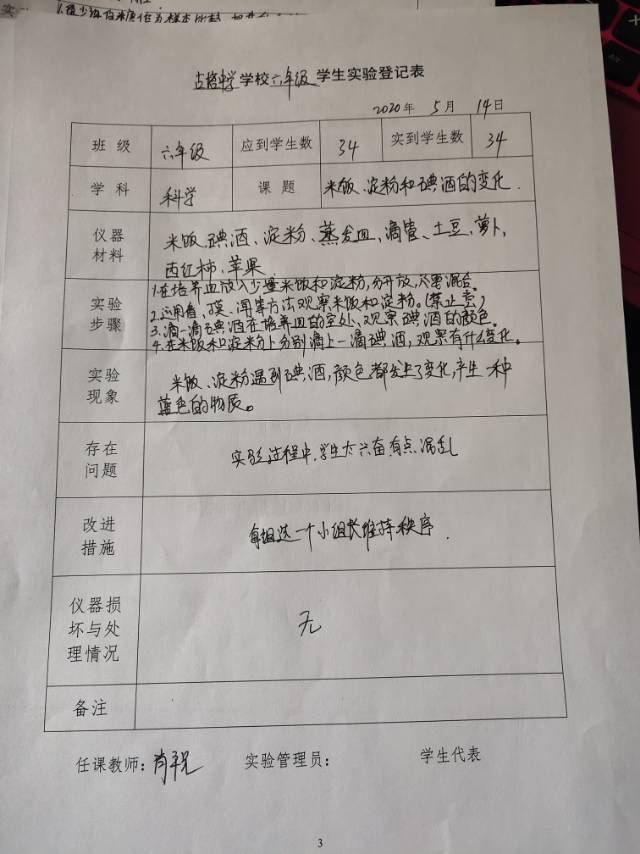 学校六年级学生实验登记表
2020年 5月 14日
班级 六年级 应到学生数 34 实到学生数 34
学科 科学 课题 米饭、淀粉和碘酒的变化.
仪器材料 米饭、碘酒、淀粉、蒸发皿,滴管、土豆,萝卜,
西红柿、苹果
实验步骤 1.在培养皿放入少量米饭和淀粉,分开放,不要混合。
2.运用看、摸、闻等方法观察米饭和淀粉。(禁止尝)
3.滴一滴碘酒在培养皿的空处、观察碘酒的颜色。
4.在米饭和淀粉上分别滴上一滴碘酒,观察有什么变化。
实验现象 米饭、淀粉遇到碘酒,颜色都发生了变化,产生一种
蓝色的物质。
存在问题 实验过程中,学生太兴奋有点混乱
改进措施 每组选一个小组长维持秩序.
仪器损坏与处理情况 无
备注
任课教师: 实验管理员: 学生代表
3